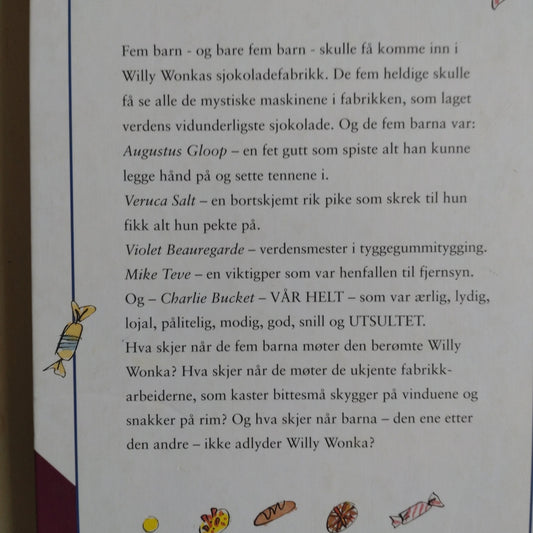 Fem barn - og bare fem barn - skulle få komme inn i
Willy Wonkas sjokoladefabrikk. De fem heldige skulle
få se alle de mystiske maskinene i fabrikken, som laget
verdens vidunderligste sjokolade. Og de fem barna var:
Augustus Gloop – en fet gutt som spiste alt han kunne
legge hånd på og sette tennene i.
Veruca Salt – en bortskjemt rik pike som skrek til hun
fikk alt hun pekte på.
Violet Beauregarde – verdensmester i tyggegummitygging.
Mike Teve – en viktigper som var henfallen til fjernsyn.
Og – Charlie Bucket – VÅR HELT – som var ærlig, lydig,
lojal, pålitelig, modig, god, snill og UTSULTET.
Hva skjer når de fem barna møter den berømte Willy
Wonka? Hva skjer når de møter de ukjente fabrikk-
arbeiderne, som kaster bittesmå skygger på vinduene og
snakker på rim? Og hva skjer når barna – den ene etter
den andre – ikke adlyder Willy Wonka?